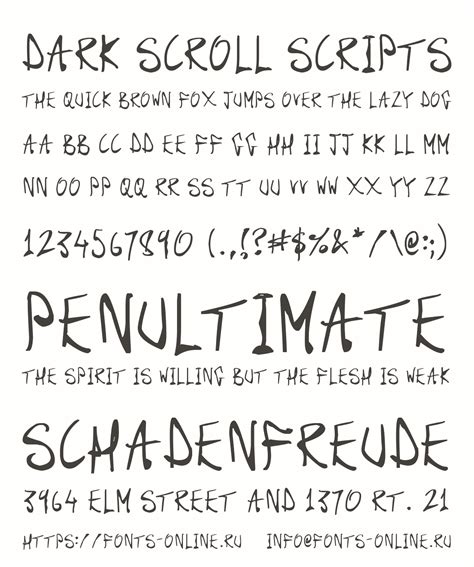 DARK SCROLL SCRIPTS
THE QUICK BROWN FOX JUMPS OVER THE LAZY DOG
AA BB CC DD EE FF GG HH II JJ KK LL MM
NN OO PP QQ RR SS TT UU VV WW XX YY ZZ
1234567890 (.,!?#$%&*/\@:;)
PENULTIMATE
THE SPIRIT IS WILLING BUT THE FLESH IS WEAK
SCHADENFREUDE
3964 ELM STREET AND 1370 RT. 21
HTTPS://FONTS-ONLINE.RU INFO@FONTS-ONLINE.RU